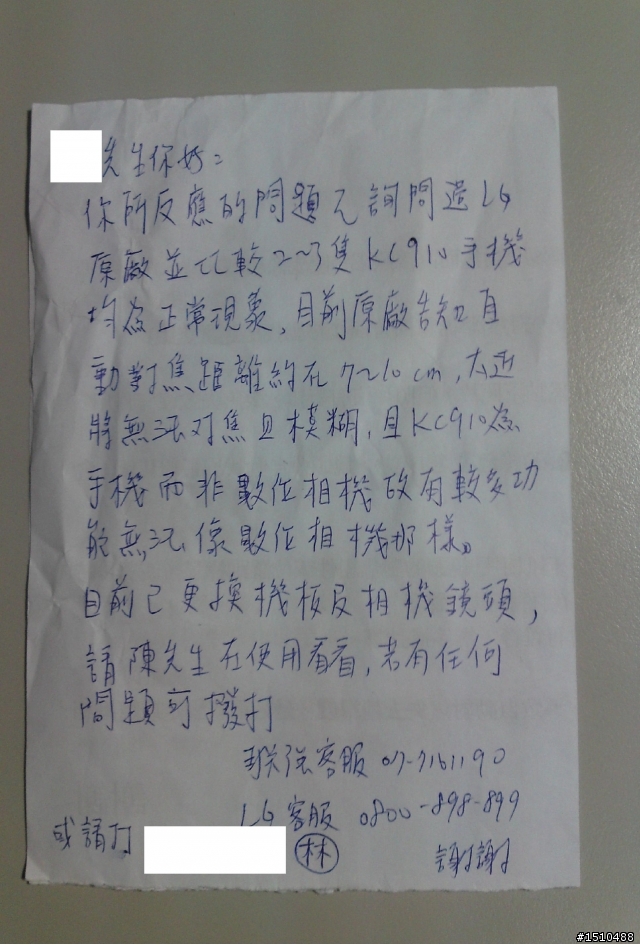 先生你好:
你所反應的問題已詢問過LG
原廠並比較2~3隻KC910手機
均為正常現象,目前原廠告知自
動對焦距離約在7~10cm,太近
將無法对焦且模糊,且KC910為
手機而非數位相機故有較多功
能無法像數位相機那樣。
目前已更換機板及相機鏡頭,
請陳先生在使用看看,若有任何
問題可撥打
联強客服 07-7161190
LG客服 0800-898-899
或請打 林 謝謝
#1510488